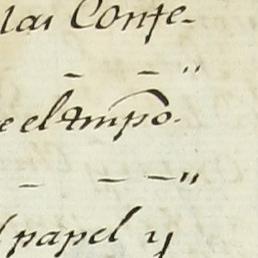 las Confe-
- - "
e el tmpo.
- - - "
papel y